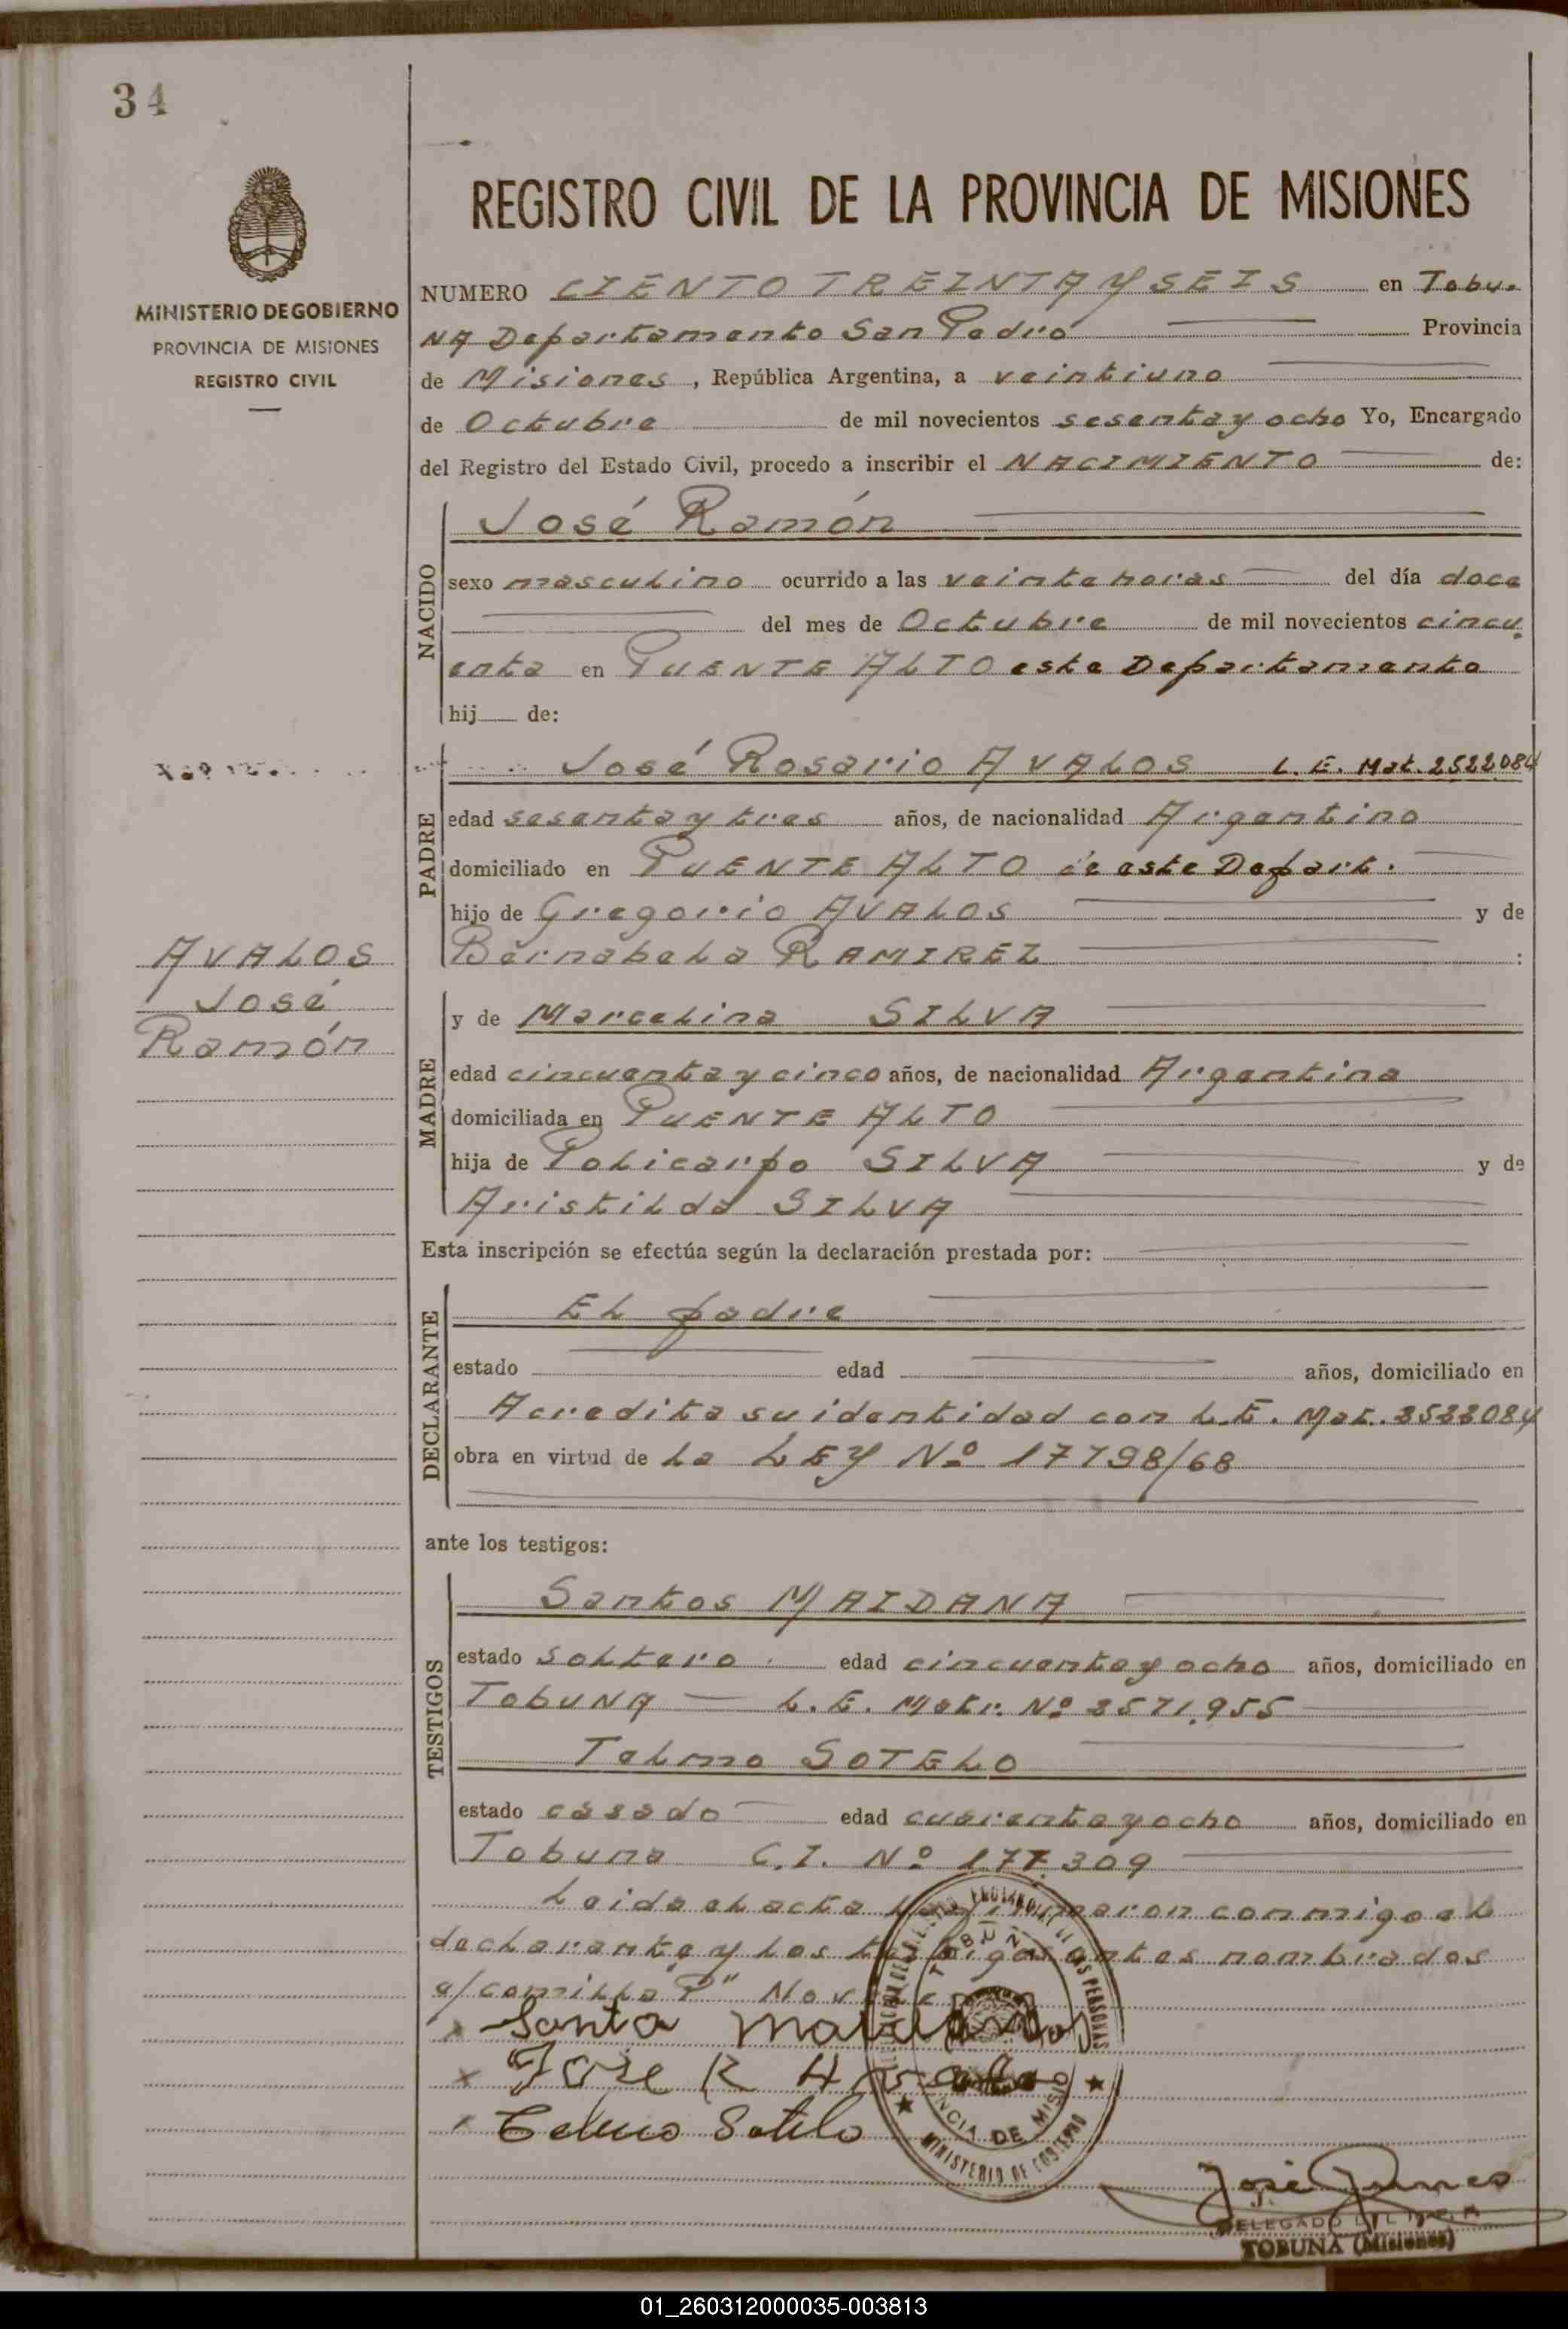 34
MINISTERIO DE GOBIERNO
PROVINCIA DE MISIONES
REGISTRO CIVIL
AVALOS
José
Ramón
REGISTRO CIVIL DE LA PROVINCIA DE MISIONES
NUMERO CIENTO TREINTA Y SEIS en Tobu-
NA Departamento San Pedro Provincia
de Misiones, República Argentina, a veintiuno
de Octubre de mil novecientos sesenta y ocho Yo, Encargado
del Registro del Estado Civil, procedo a inscribir el NACIMIENTO de:
NACIDO
José Ramón
sexo masculino ocurrido a las veinte horas del día doce
del mes de Octubre de mil novecientos cincu-
enta en PUENTE ALTO este Departamento
hij de:
PADRE
José Rosario AVALOS L. E. Mat. 2522084
edad sesenta y tres años, de nacionalidad Argentino
domiciliado en PUENTE ALTO de este Depart.
hijo de Gregorio AVALOS y de
Bernabela RAMIREZ :
MADRE
y de Marcelina SILVA
edad cincuenta y cinco años, de nacionalidad Argentina
domiciliada en PUENTE ALTO
hija de Policarpo SILVA y de
Aristilda SILVA
Esta inscripción se efectúa según la declaración prestada por:
DECLARANTE
El padre
estado edad años, domiciliado en
Acredita su identidad con L.E. Mat. 3522084
obra en virtud de la LEY Nº 17798/68
ante los testigos:
TESTIGOS
Santos MAIDANA
estado soltero edad cincuenta y ocho años, domiciliado en
TobuNA — L. E. Matr. Nº 3571.955
Telmo SOTELO
estado casado edad cuarenta y ocho años, domiciliado en
Tobuna C.I. Nº 177.309
Leida el acta la firmaron conmigo el
declarante y los testigos antes nombrados
e/comilla "P" No
x Santo
x Jose R
x Telmo Sotelo
TOBUNA
PROVINCIA DE MISIONES
MINISTERIO DE GOBIERNO
José
DELEGADO DEL
TOBUNA (Misiones)
01_260312000035-003813